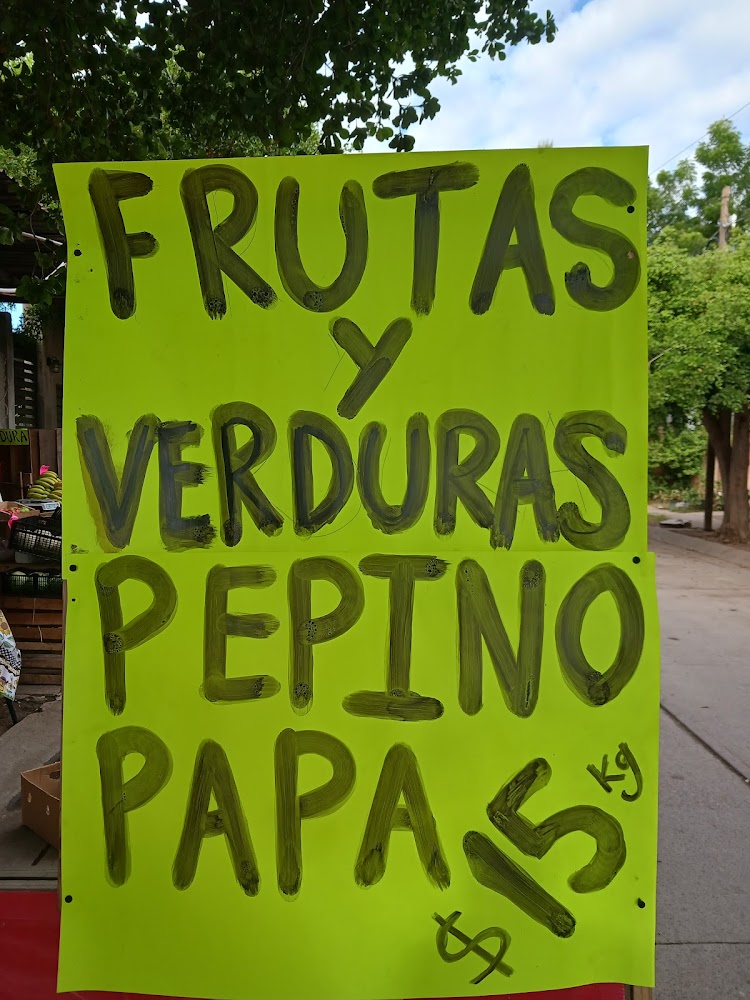 FRUTAS
Y
VERDURAS
PEPINO
PAPA
$15 kg
DURA